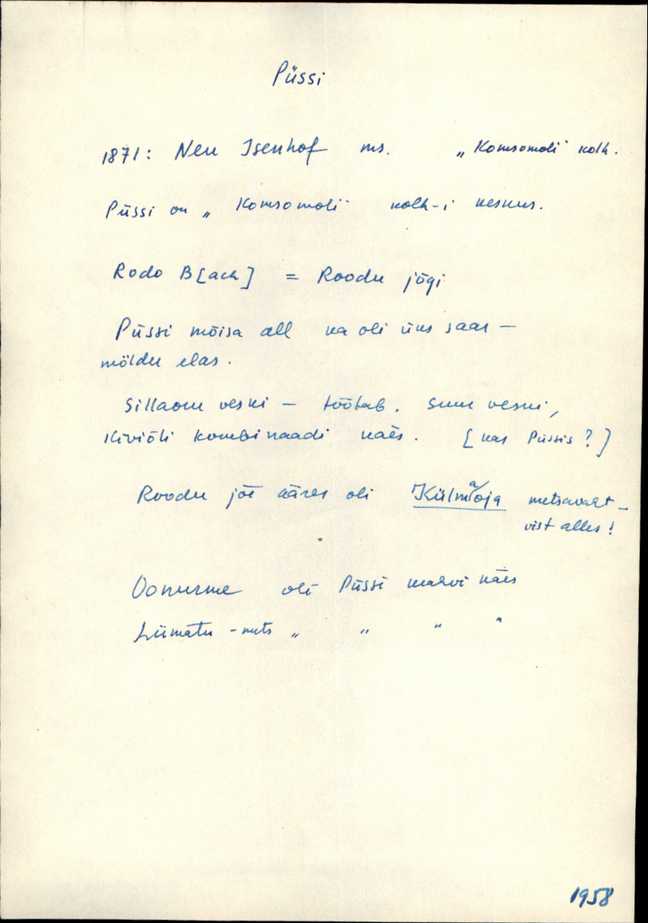 Püssi
1871: Neu Isenhof ms. „Komsomoli" kolh.
Püssi on „Komsomoli" kolh-i keskus.
Rodo B[ach] = Roodu jõgi
Püssi mõisa all ka oli üks saar —
möldu elas.
Sillaoru veski — töötab. Suur veski,
Kiviõli kombinaadi käes. [kas Püssis?]
Roodu jõe ääres oli Külmaoja metsavaht —
vist alles!
Oonurme oli Püssi krahvi käes
Liimatu-mets „ „ „ „
1958